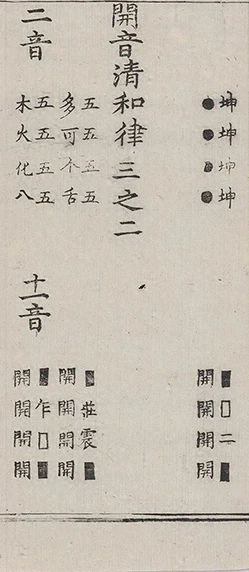 坤坤坤坤
●●●●
■□二■
開開開開
開音清和律三之二
二音
五五五五
多可个舌
五五五五
木火化八
十一音
■莊震■
開開開開
■乍□■
開開開開